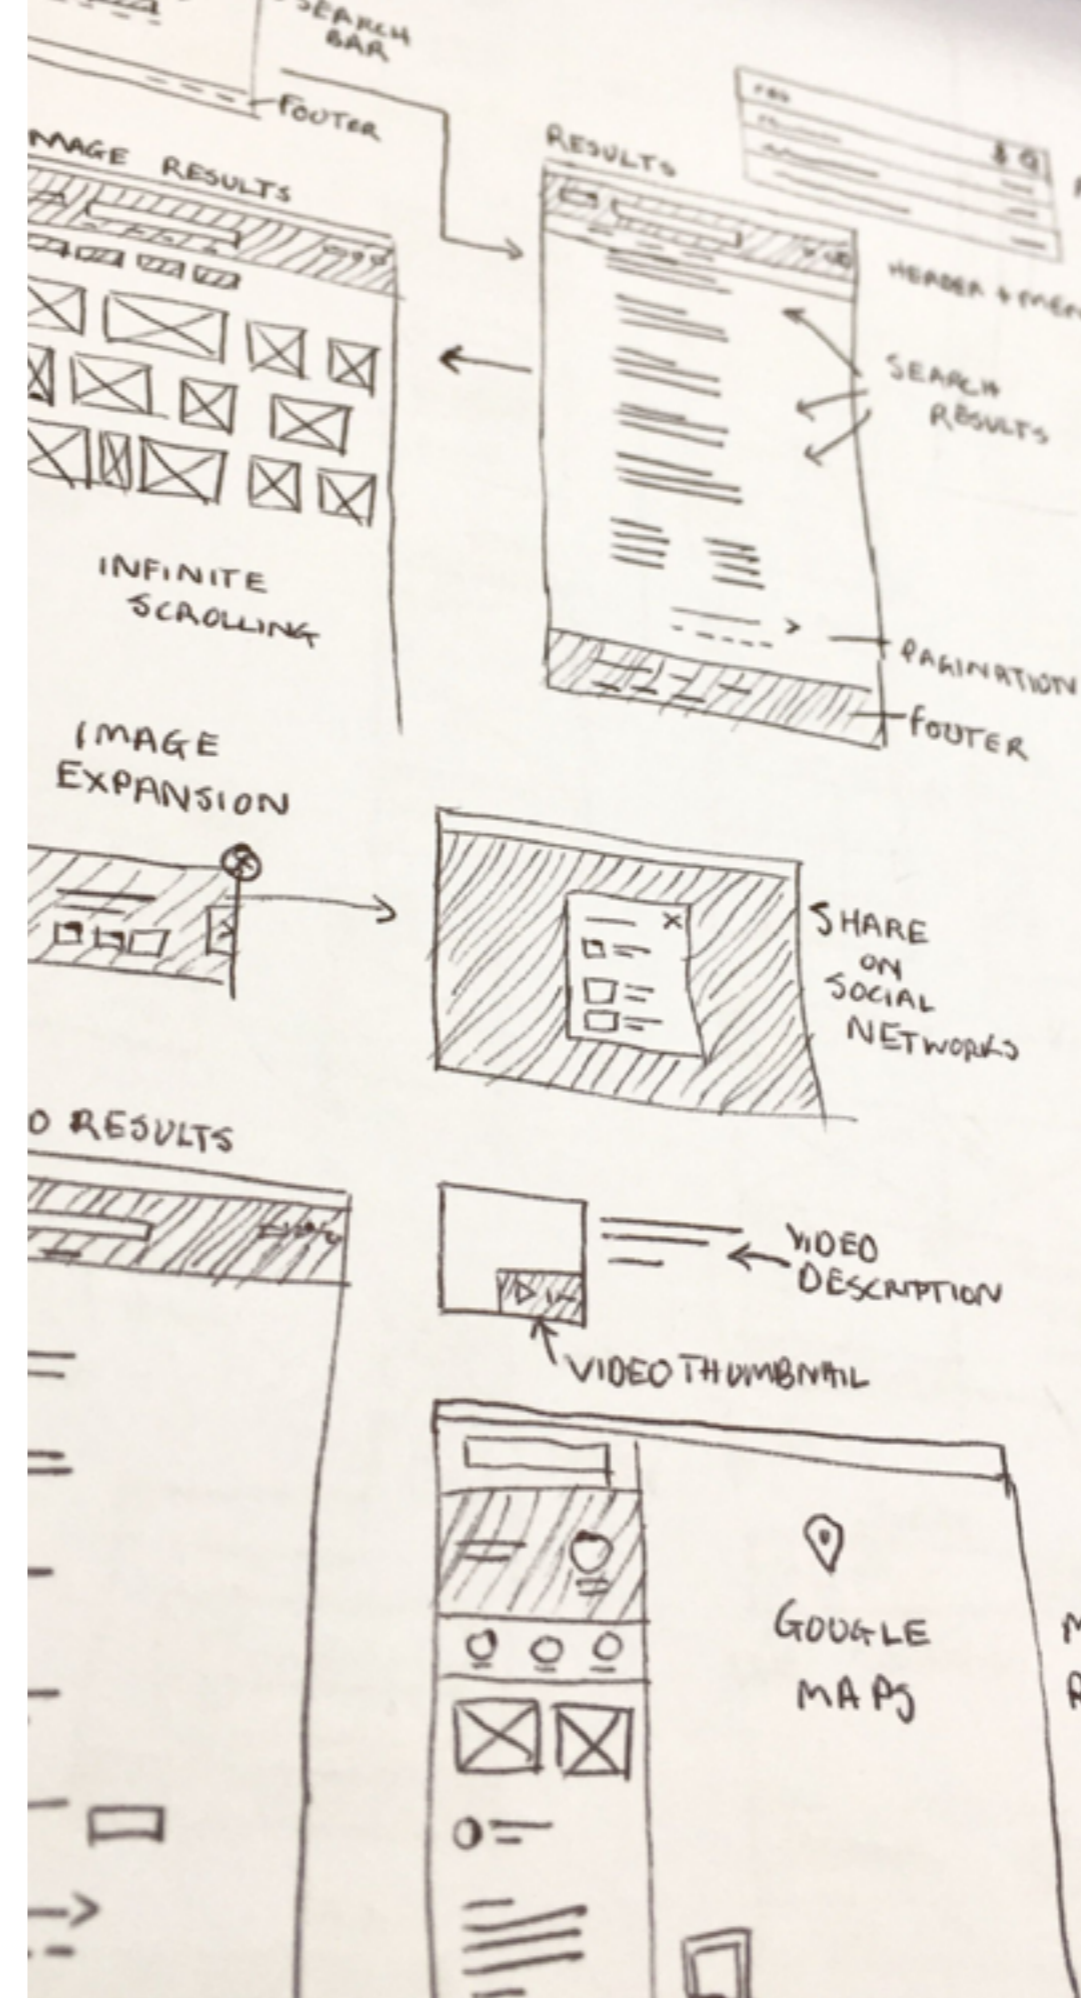 SEARCH
BAR
FOOTER
IMAGE RESULTS
RESULTS
HEADER + MEN
SEARCH
RESULTS
INFINITE
SCROLLING
PAGINATION
FOOTER
IMAGE
EXPANSION
SHARE
ON
SOCIAL
NETWORKS
O RESULTS
VIDEO
DESCRIPTION
VIDEO THUMBNAIL
GOOGLE
MAPS
M
R